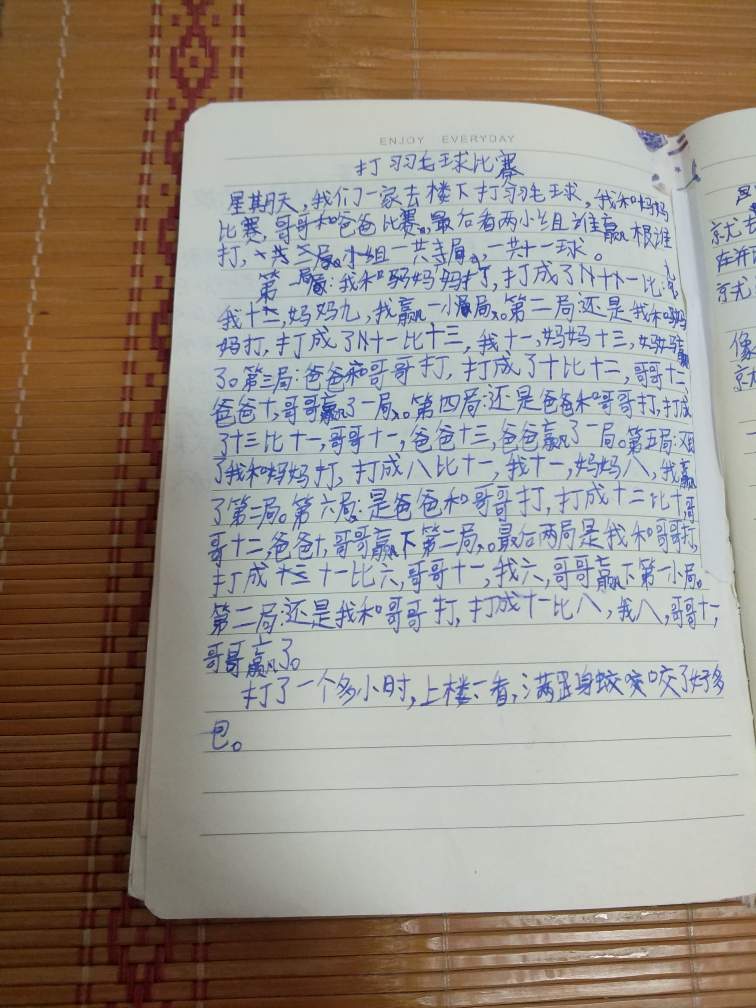 ENJOY EVERYDAY
打羽毛球比赛
星期天，我们一家去楼下打羽毛球，我和妈妈
比赛，哥哥和爸爸比赛。最后看两小组谁赢根谁
打，一共三局。小组一共局，一共十一球。
第一局：我和妈妈打，打成了十一比九
我十一，妈妈九，我赢一小局。第二局还是我和妈
妈打，打成了十一比十三，我十一，妈妈十三，妈妈赢
了。第三局：爸爸和哥哥打，打成了十比十二，哥哥十二
爸爸十，哥哥赢了一局。第四局：还是爸爸和哥哥打，打成
了十三比十一，哥哥十一，爸爸十三，爸爸赢了一局。第五局：又
了我和妈妈打，打成八比十一，我十一，妈妈八，我赢
了第二局。第六局：是爸爸和哥哥打，打成十二比十，哥
哥十二，爸爸十，哥哥赢下第二局。最后两局是我和哥哥打，
打成十一比六，哥哥十一，我六，哥哥赢下第一小局。
第二局：还是我和哥哥打，打成十一比八，我八，哥哥十一，
哥哥赢了。
打了一个多小时，上楼一看，满身蛟咬了好多
包。
就
在
可
像